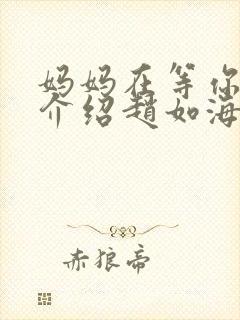 妈妈在等你
介绍赵如海
赤狼帝